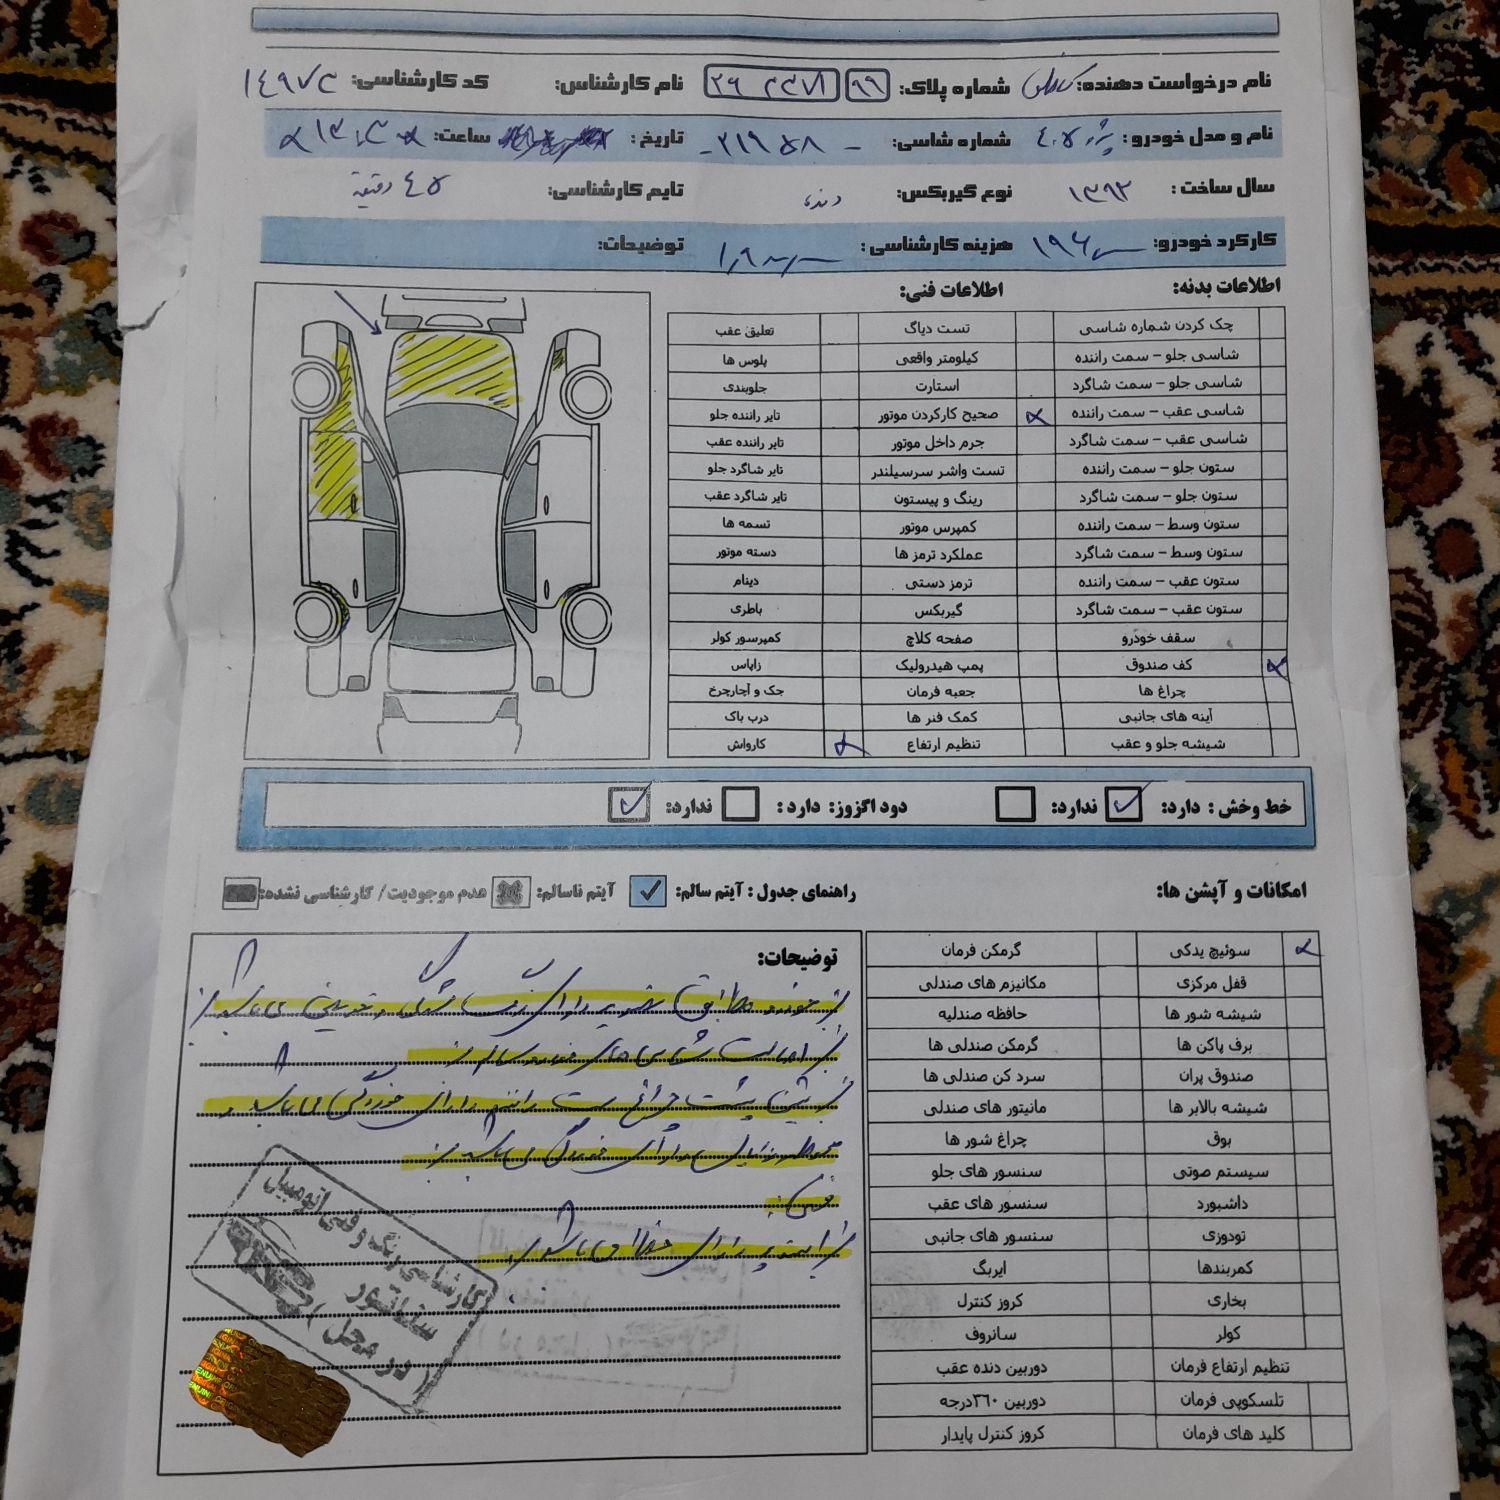 نام درخواست دهنده: شماره پلاک: ۹۹ نام کارشناس: کد کارشناسی:
نام و مدل خودرو: پژو ۴۰۵ شماره شاسی: ۲۱۹۵۸ تاریخ: ساعت:
سال ساخت: ۱۳۹۲ نوع گیربکس: دنده تایم کارشناسی: ۴۵ دقیقه
کارکرد خودرو: هزینه کارشناسی: توضیحات:
اطلاعات بدنه: اطلاعات فنی:
چک کردن شماره شاسی تست دیاگ تعلیق عقب
شاسی جلو - سمت راننده کیلومتر واقعی پلوس ها
شاسی جلو - سمت شاگرد استارت جلوبندی
شاسی عقب - سمت راننده صحیح کارکردن موتور تایر راننده جلو
شاسی عقب - سمت شاگرد جرم داخل موتور تایر راننده عقب
ستون جلو - سمت راننده تست واشر سرسیلندر تایر شاگرد جلو
ستون جلو - سمت شاگرد رینگ و پیستون تایر شاگرد عقب
ستون وسط - سمت راننده کمپرس موتور تسمه ها
ستون وسط - سمت شاگرد عملکرد ترمز ها دسته موتور
ستون عقب - سمت راننده ترمز دستی دینام
ستون عقب - سمت شاگرد گیربکس باطری
سقف خودرو صفحه کلاچ کمپرسور کولر
کف صندوق پمپ هیدرولیک زاپاس
چراغ ها جعبه فرمان جک و آچارچرخ
آینه های جانبی کمک فنر ها درب باک
شیشه جلو و عقب تنظیم ارتفاع کارواش
خط و خش: دارد: ندارد: دود اگزوز: دارد: ندارد:
امکانات و آپشن ها: راهنمای جدول: آیتم سالم: آیتم ناسالم: عدم موجودیت/ کارشناسی نشده:
سوئیچ یدکی گرمکن فرمان
قفل مرکزی مکانیزم های صندلی
شیشه شور ها حافظه صندلیه
برف پاکن ها گرمکن صندلی ها
صندوق پران سرد کن صندلی ها
شیشه بالابر ها مانیتور های صندلی
بوق چراغ شور ها
سیستم صوتی سنسور های جلو
داشبورد سنسور های عقب
تودوزی سنسور های جانبی
کمربندها ایربگ
بخاری کروز کنترل
کولر سانروف
تنظیم ارتفاع فرمان دوربین دنده عقب
تلسکوپی فرمان دوربین ۳۶۰درجه
کلید های فرمان کروز کنترل پایدار
توضیحات:
خودرو مطابق تصویر دارای رنگ و تعویض می باشد
پشت چراغ سمت راننده دارای خوردگی می باشد
دارای خوردگی می باشد
فنی:
دارای خطا می باشد
کارشناسی رنگ و فنی اتومبیل
سناتور
در محل